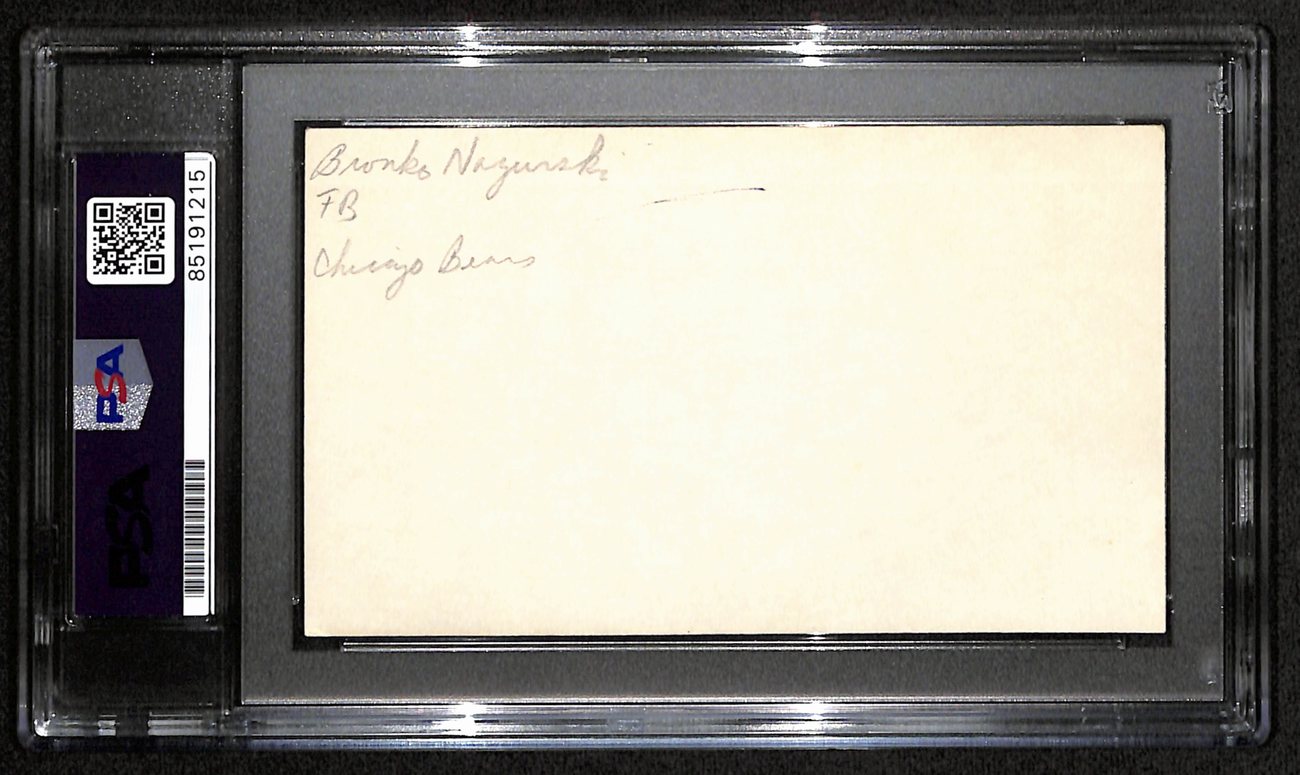 Bronko Nagurski
FB
Chicago Bears
85191215
PSA
PSA